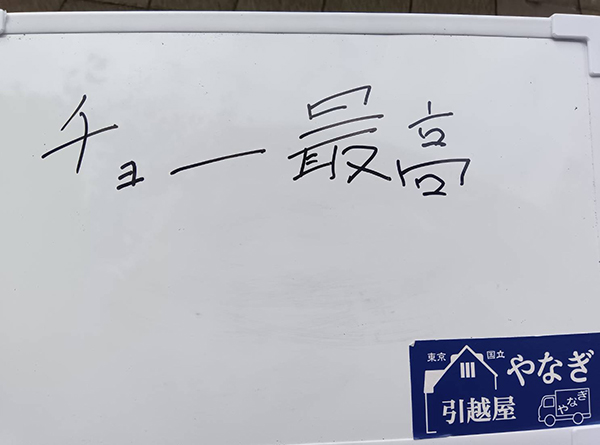 チョー最高
東京 国立 やなぎ
引越屋
やなぎ